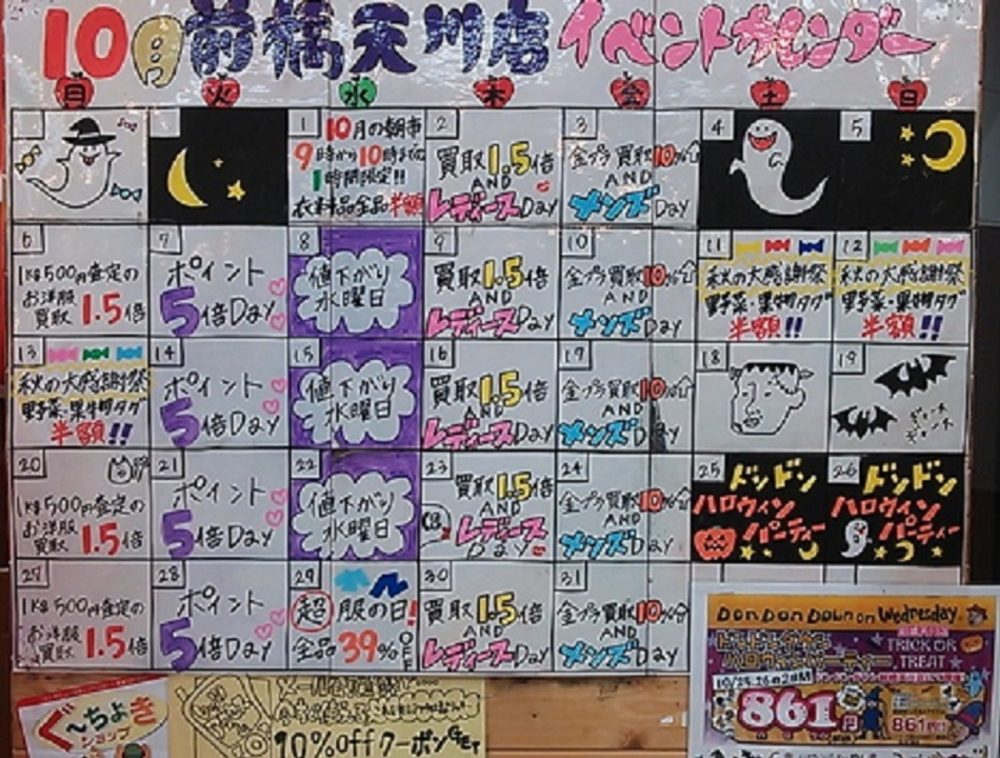 10月 前橋天川店 イベントカレンダー
日 火 水 木 金 土 日
1
10月の朝市
9時から10時まで
1時間限定!!
衣料品全品半額
2
買取1.5倍
AND
レディースDay
3
金プラ買取10%
AND
メンズDay
4
5
6
1kg500円査定の
お洋服
買取1.5倍
7
ポイント
5倍Day
8
値下がり
水曜日
9
買取1.5倍
AND
レディースDay
10
金プラ買取10%
AND
メンズDay
11
秋の大感謝祭
野菜・果物タグ
半額!!
12
秋の大感謝祭
野菜・果物タグ
半額!!
13
秋の大感謝祭
野菜・果物タグ
半額!!
14
ポイント
5倍Day
15
値下がり
水曜日
16
買取1.5倍
AND
レディースDay
17
金プラ買取10%
AND
メンズDay
18
19
20
1kg500円査定の
お洋服
買取1.5倍
21
ポイント
5倍Day
22
値下がり
水曜日
23
買取1.5倍
AND
レディース
Day
24
金プラ買取10%
AND
メンズDay
25
ドンドン
ハロウィン
パーティー
26
ドンドン
ハロウィン
パーティー
27
1kg500円査定の
お洋服
買取1.5倍
28
ポイント
5倍Day
29
超服の日!
全品39%OFF
30
買取1.5倍
AND
レディースDay
31
金プラ買取10%
AND
メンズDay
ぐ〜ちょき
ショップ
10%offクーポンGET
DonDonDown on Wednesday
ハロウィンパーティー
TRICK OR
TREAT
861円